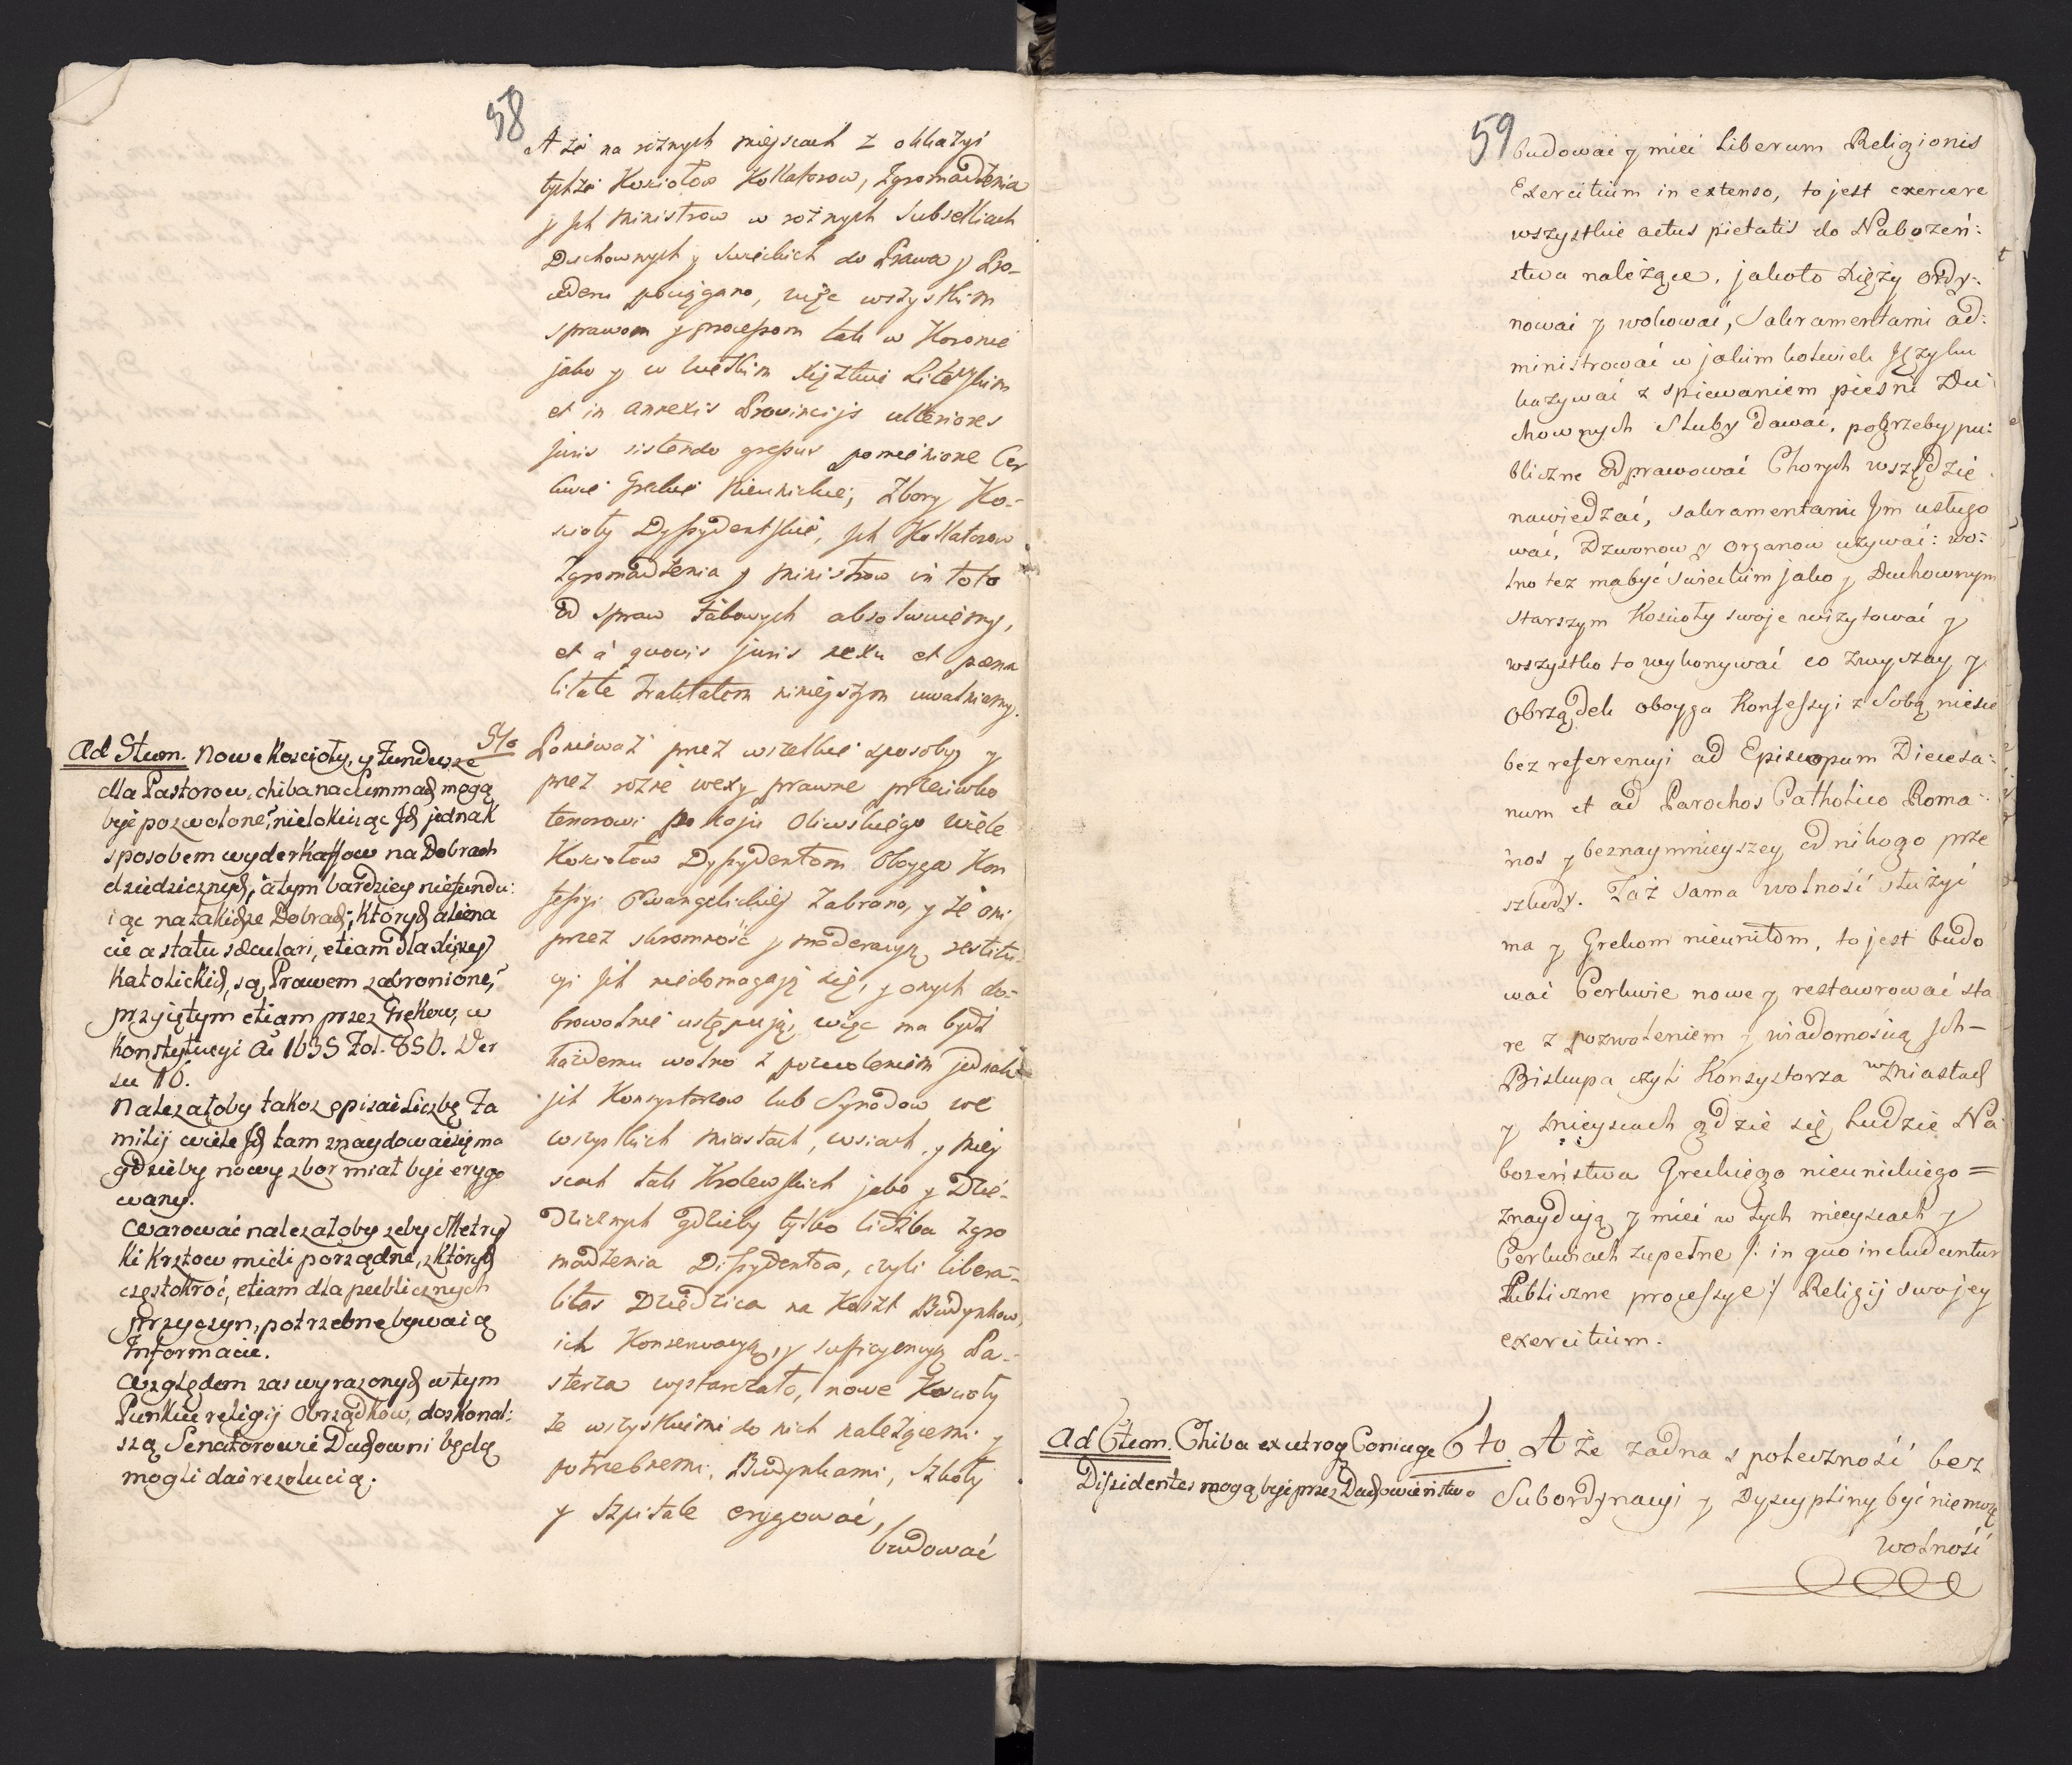 58
A że na rożnych mieyscach z okkazyi
tychże Kosciołow Kollatorow, Zgromadzenia
y Jch Ministrow w rożnych Subselliach
Duchownych y Swieckich do Prawa y Pro-
cederu pociągano, więc wszystkim
sprawom y processom tak w Koronie
jako y w Wielkim Xięztwie Litewskim
et in annexis Provincijs ulteriores
juris sistendo gressus pomienione Cer
kwie Greckie Nieunickie, Zbory Ko-
scioły Dyssydentskie, Jch Kollatorow
Zgromadzenia y Ministrow in toto
od spraw takowych absolwuiemy,
et à quovis juris nexu et pæna
litate Traktatem ninieyszym uwalniamy.
Ad 5tum. Nowe Koscioły, y Fundusze
dla Pastorow, chiba na Summach mogą
być pozwolone, nielokuiąc Jch jednak
sposobem wyderkaffow na Dobrach
dziedzicznych, a tym bardziey niefundu:
iąc na takichże Dobrach, ktorych aliena
cie a statu sæculari, etiam dla Xięży
Katolickich, są Prawem zabronione,
przyiętym etiam przez Grekow, w
Konstytucyi Ai 1635 Fol. 856. Ver
su 10.
Należałoby także opisać Liczbę Fa
milij wiele Jch tam znaydować się ma
gdzieby nowy zbor miał być erygo
wany.
Warować należałoby żeby Metry
ki Krztow mieli porządne, z ktorych
częstokroć, etiam dla publicznych
przyczyn, potrzebne bywaią
Informacie.
Względem zas wyrażonych w tym
Punkcie religij Obrządkow, doskonal:
szą Senatorowie Duchowni będą
mogli dać rezolucią.
5to Ponieważ przez wszelkie sposoby y
przez rożne wexy prawne przeciwko
tenorowi Pokoju Oliwskiego wiele
Kosciołow Dyssydentom Oboyga Kon
fessyi Ewangelickiey Zabrano, y że oni
przez skromność y moderacyą restitu-
cyi Jch niedomagają się, y onych do-
browolnie ustępują, więc ma bydź
każdemu wolno z pozwoleniem jednak
jch Konsystorzow lub Synodow we
wszystkich Miastach, wsiach y Miey
scach tak Krolewskich jako y Dzie-
dzicznych gdzieby tylko liczba zgro
madzenia Dissydentow, czyli libera-
litas Dziedzica na Koszt Budynkow,
ich Konserwacyą, y sufficyencyą Pa-
sterza wystarczało, nowe Koscioły
ze wszystkiemi do nich należącemi y
potrzebnemi, Budynkami, Szkoły
y Szpitale erygować,
budować
59
budować y mieć Liberum Religionis
Exercitium in extenso, to jest exercere
wszystkie actus pietatis do Nabożeń:
stwa należące, jakoto Xięży ordy:
nować y wokować, Sakramentami ad:
ministrować w jakimkolwiek Języku
kazywać z spiewaniem piesni Du
chownych Sluby dawać, pogrzeby pu:
bliczne odprawować Chorych wszędzie
nawiedzać, Sakramentami Jm usługo
wać, Dzwonow y Organow używać: wo:
lno też ma być Swieckim jako y Duchownym
Starszym Koscioły swoje wizytować y
wszystko to wykonywać co Zwyczay y
Obrządek oboyga Konfessyi z Sobą niesie
bez referencyi ad Episcopum Diecesa:
num et ad Parochos Catholico Roma-
nos y beznaymnieyszey od nikogo prze
szkody. Taż sama wolność służyć
ma y Grekom nieunitom, to jest budo
wać Cerkwie nowe y restawrować sta
re z pozwoleniem y wiadomoscią Jch-
Biskupa czyli Konsystorza w Miastach
y Mieyscach gdzie się Ludzie Na
bożeństwa Greckiego nieunickiego =
Znaydują y mieć w tych mieyscach y
Cerkwiach zupełne /: in quo includuntur
Publiczne processye :/ Religij swojey
exercitium.
Ad 6tum. Chiba ex utroq Coniuge
Dissidentes mogą być przez Duchowieństwo
6to. A że żadna społeczność bez
Subordynacyi y Dyscypliny być niemoże
wolność